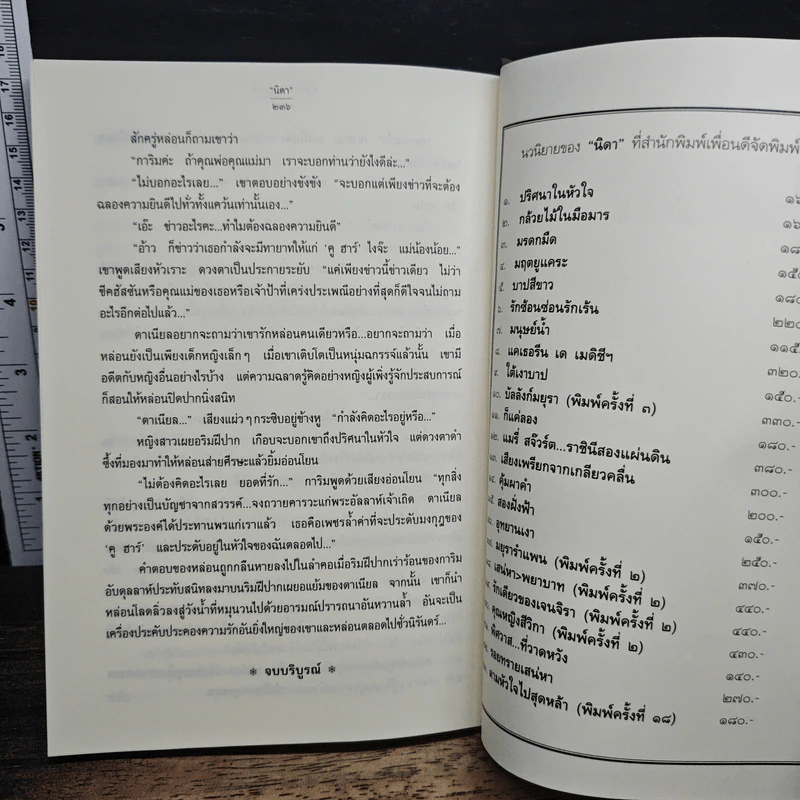 "นิดา"
๒๓๖
สักครู่หล่อนก็ถามเขาว่า
"การิมคะ ถ้าคุณพ่อคุณแม่มา เราจะบอกท่านว่ายังไงดีล่ะ..."
"ไม่บอกอะไรเลย..." เขาตอบอย่างขังขัง "จะบอกแต่เพียงข่าวที่จะต้อง
ฉลองความยินดีไปทั่วทั้งแคว้นเท่านั้นเอง..."
"เอ๊ะ ข่าวอะไรคะ...ทำไมต้องฉลองความยินดี"
"อ้าว ก็ข่าวว่าเธอกำลังจะมีทายาทให้แก่ 'คู ฮาร์' ไงจ๊ะ แม่น้องน้อย..."
เขาพูดเสียงหัวเราะ ดวงตาเป็นประกายระยับ "แค่เพียงข่าวนี้ข่าวเดียว ไม่ว่า
ชีคฮัสซันหรือคุณแม่ของเธอหรือเจ้าป้าที่เคร่งประเพณีอย่างที่สุดก็ดีใจจนไม่ถาม
อะไรอีกต่อไปแล้ว..."
ดาเนียลอยากจะถามว่าเขารักหล่อนคนเดียวหรือ...อยากจะถามว่า เมื่อ
หล่อนยังเป็นเพียงเด็กหญิงเล็กๆ เมื่อเขาเติบโตเป็นหนุ่มฉกรรจ์แล้วนั้น เขามี
อดีตกับหญิงอื่นอย่างไรบ้าง แต่ความฉลาดรู้คิดอย่างหญิงผู้เพิ่งรู้จักประสบการณ์
ก็สอนให้หล่อนปิดปากนิ่งสนิท
"ดาเนียล..." เสียงแผ่วๆกระซิบอยู่ข้างหู "กำลังคิดอะไรอยู่หรือ..."
หญิงสาวเผยอริมฝีปาก เกือบจะบอกเขาถึงปริศนาในหัวใจ แต่ดวงตาดำ
ซึ้งที่มองมาทำให้หล่อนส่ายศีรษะแล้วยิ้มอ่อนโยน
"ไม่ต้องคิดอะไรเลย ยอดที่รัก..." การิมพูดด้วยเสียงอ่อนโยน "ทุกสิ่ง
ทุกอย่างเป็นบัญชาจากสวรรค์...จงถวายคารวะแก่พระอัลลาห์เจ้าเถิด ดาเนียล
ด้วยพระองค์ได้ประทานพรแก่เราแล้ว เธอคือเพชรล้ำค่าที่จะประดับมงกุฎของ
'คู ฮาร์' และประดับอยู่ในหัวใจของฉันตลอดไป..."
คำตอบของหล่อนถูกกลืนหายลงไปในลำคอเมื่อริมฝีปากเร่าร้อนของการิม
อับดุลลาห์ประทับสนิทลงมาบนริมฝีปากเผยอแย้มของดาเนียล จากนั้น เขาก็นำ
หล่อนโลดลิ่วลงสู่วังน้ำที่หมุนวนไปด้วยอารมณ์ปรารถนาอันหวานล้ำ อันจะเป็น
เครื่องประดับประคองความรักอันยิ่งใหญ่ของเขาและหล่อนตลอดไปชั่วนิรันดร์...
❄ จบบริบูรณ์ ❄
นวนิยายของ "นิดา" ที่สำนักพิมพ์เพื่อนดีจัดพิมพ์
๑. ปริศนาในหัวใจ
๒. กล้วยไม้ในมือมาร
๓. มรดกมืด
๔. มฤตยูแคระ ๑๕๐
๕. บาปสีขาว ๑๘๐
๖. รักซ้อนซ่อนรักเร้น ๒๒๐
๗. มนุษย์น้ำ ๑๑๕
๘. แคเธอรีน เด เมดิชีฯ ๓๒๐.-
๙. ใต้เงาบาป ๑๕๐.-
๑๐. บัลลังก์มยุรา (พิมพ์ครั้งที่ ๓) ๓๓๐.-
๑๑. ก็แค่ลอง ๑๘๐.-
๑๒. แมรี่ สจ๊วร์ต...ราชินีสองแผ่นดิน ๓๘๐.-
๑๓. เสียงเพรียกจากเกลียวคลื่น ๓๐๐.-
๑๔. คุ้มผาคำ ๒๐๐.-
๑๕. สองฝั่งฟ้า ๑๕๐.-
อุทยานเงา ๒๕๐.-
มยุรารำแพน (พิมพ์ครั้งที่ ๒) ๓๗๐.-
เสน่หาพยาบาท (พิมพ์ครั้งที่ ๒) ๔๔๐.-
รักเดียวของเจนจิรา (พิมพ์ครั้งที่ ๒) ๔๔๐.-
คุณหญิงสีวิกา (พิมพ์ครั้งที่ ๒) ๔๓๐.-
พิศวาส...ที่วาดหวัง ๑๔๐.-
รอยทรายเสน่หา ๒๗๐.-
ตามหัวใจไปสุดหล้า (พิมพ์ครั้งที่ ๑๘) ๑๘๐.-